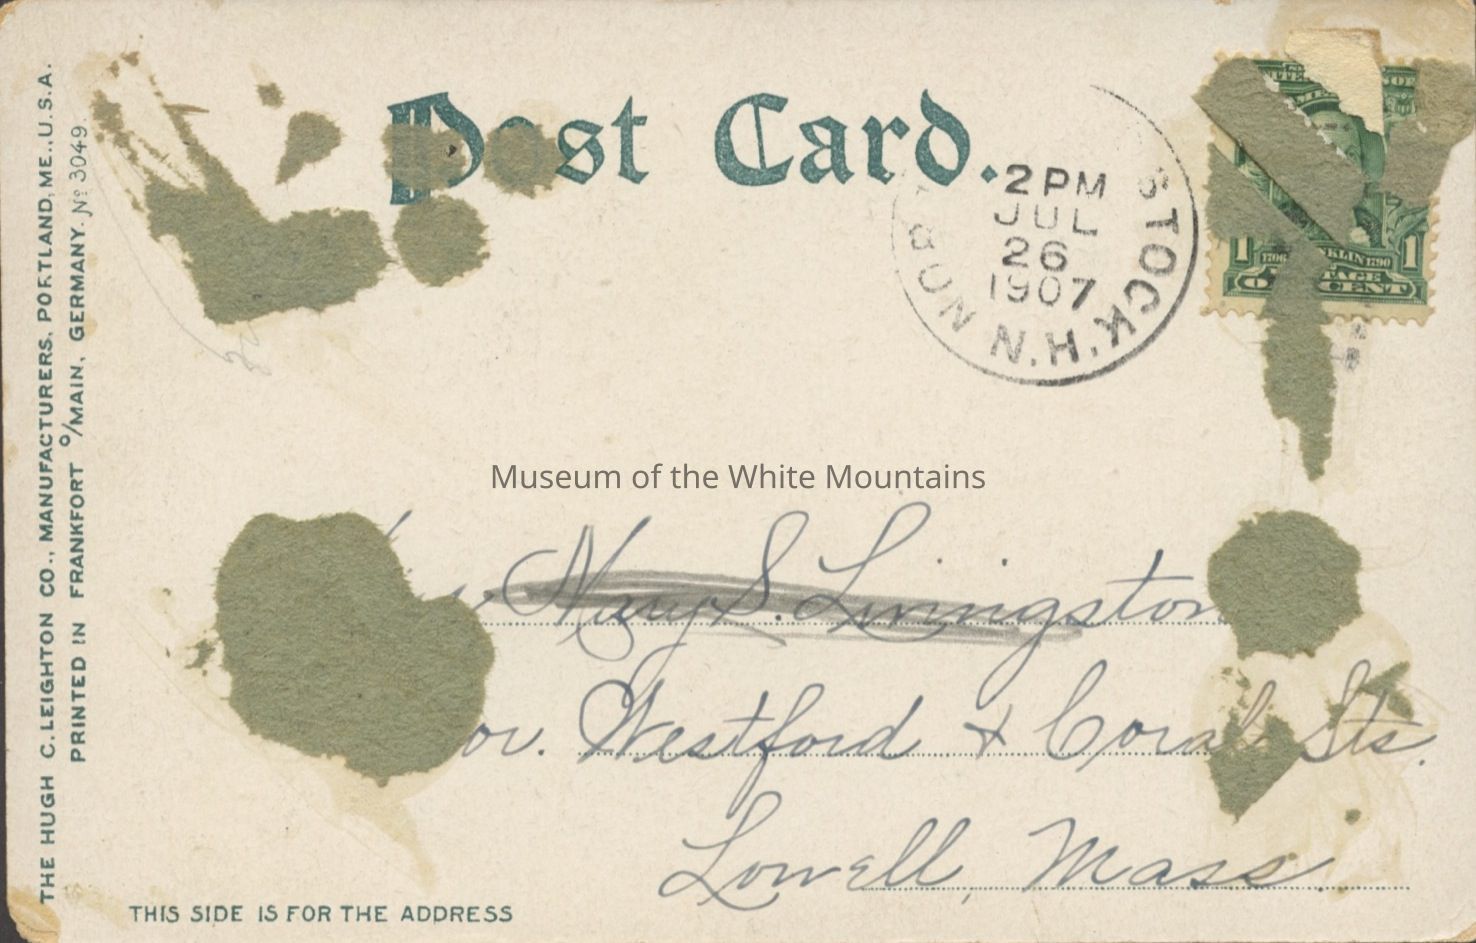 Post Card.
2 PM
JUL
26
1907
STOCK N.H.
1 1
ONE CENT
THE HUGH C. LEIGHTON CO., MANUFACTURERS, PORTLAND, ME., U.S.A.
PRINTED IN FRANKFORT o/MAIN, GERMANY. No 3049.
Museum of the White Mountains
Mary S. Livingston
Cor. Westford & Coral Sts.
Lowell, Mass.
THIS SIDE IS FOR THE ADDRESS